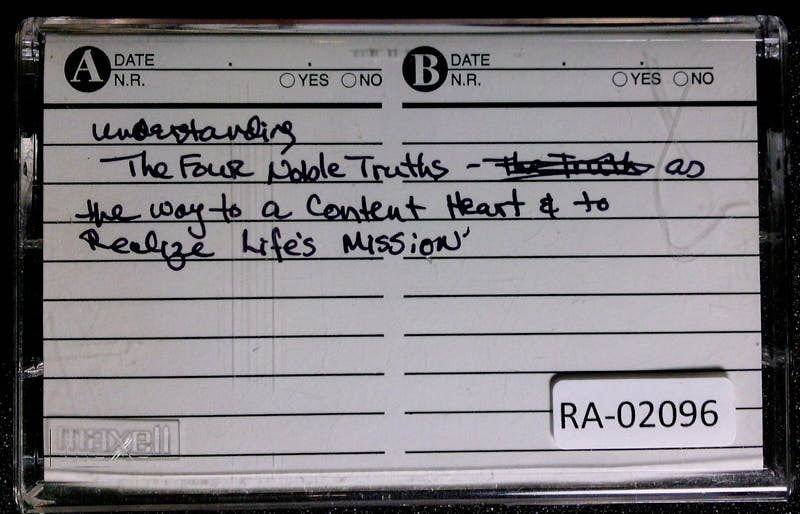 A DATE . .
N.R. YES NO
B DATE . .
N.R. YES NO
understanding
The Four Noble Truths - The Truths as
the way to a Content Heart & to
Realize Life's Mission'
maxell
RA-02096